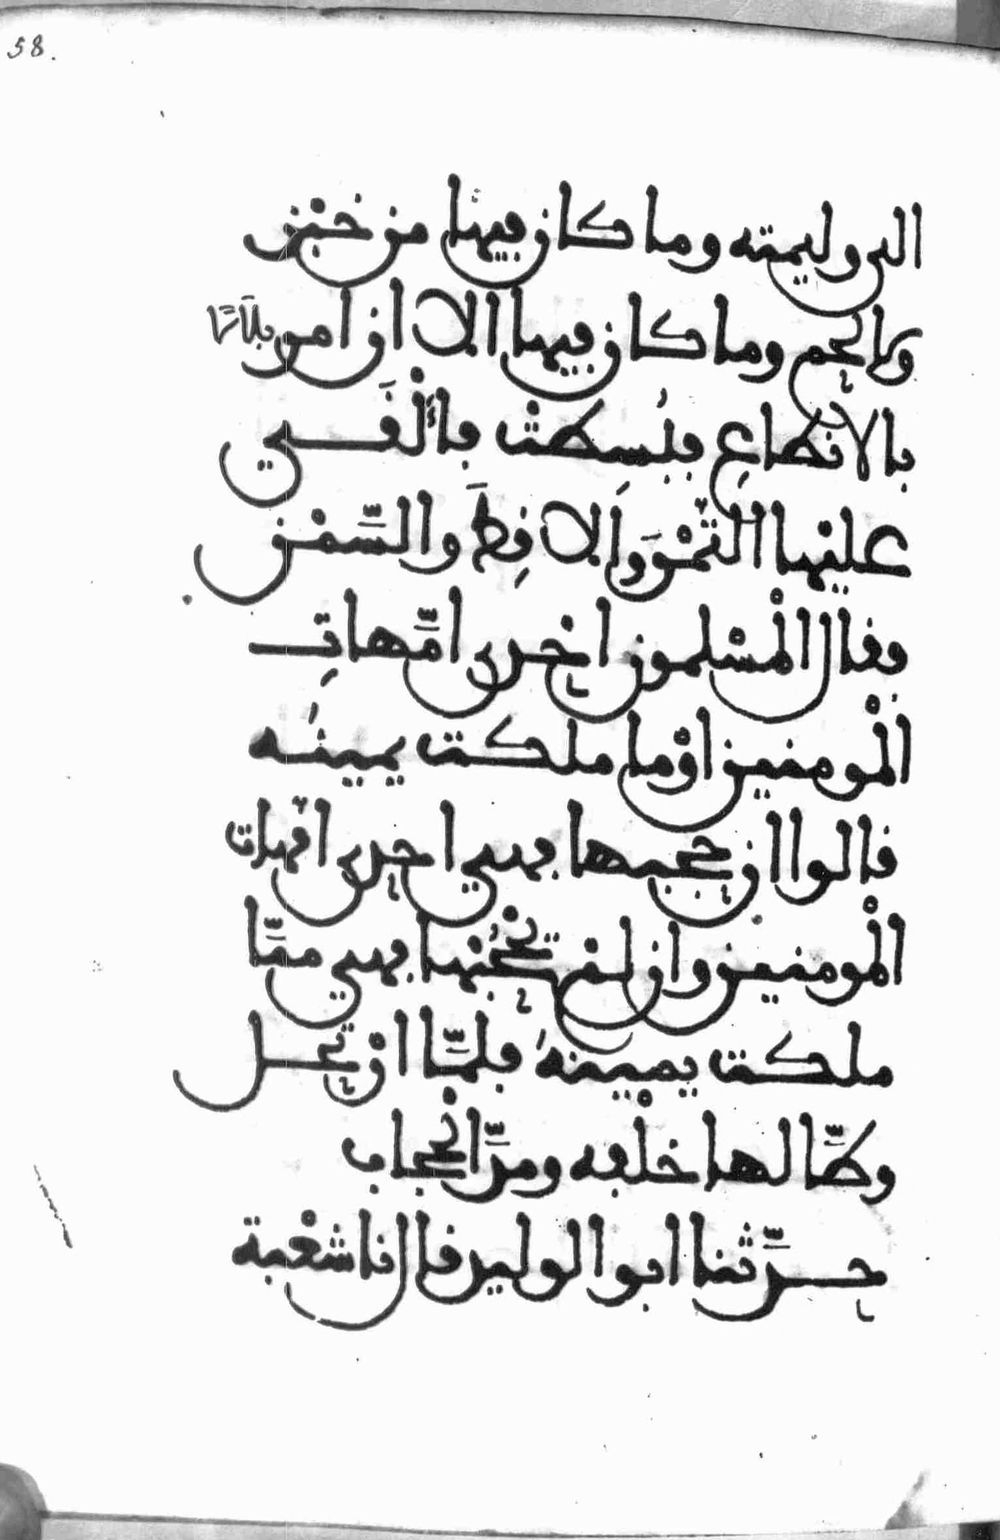 58.
الى وليمته وما كان فيها من خبز
ولا لحم وما كان فيها الا ان امر بلالا
بالانطاع فبُسِطتْ فأَلْقَى
عليْها التمْرَ والاقِطَ والسَّمْن
فقال الْمسْلمون احدى امَّهاتِ
الْمومنين اوْ ما ملكت يمينُه
قالوا ان حجبها فهي احدى امهات
الْمومنين وان لمْ يحْجُبْها فهي ممَّا
ملكت يمينهُ فلمَّا ارْتحل
وطَّا لها خلْفه ومدَّ الْحجاب
حدَّثنا ابو الوليد قال نا شعْبة